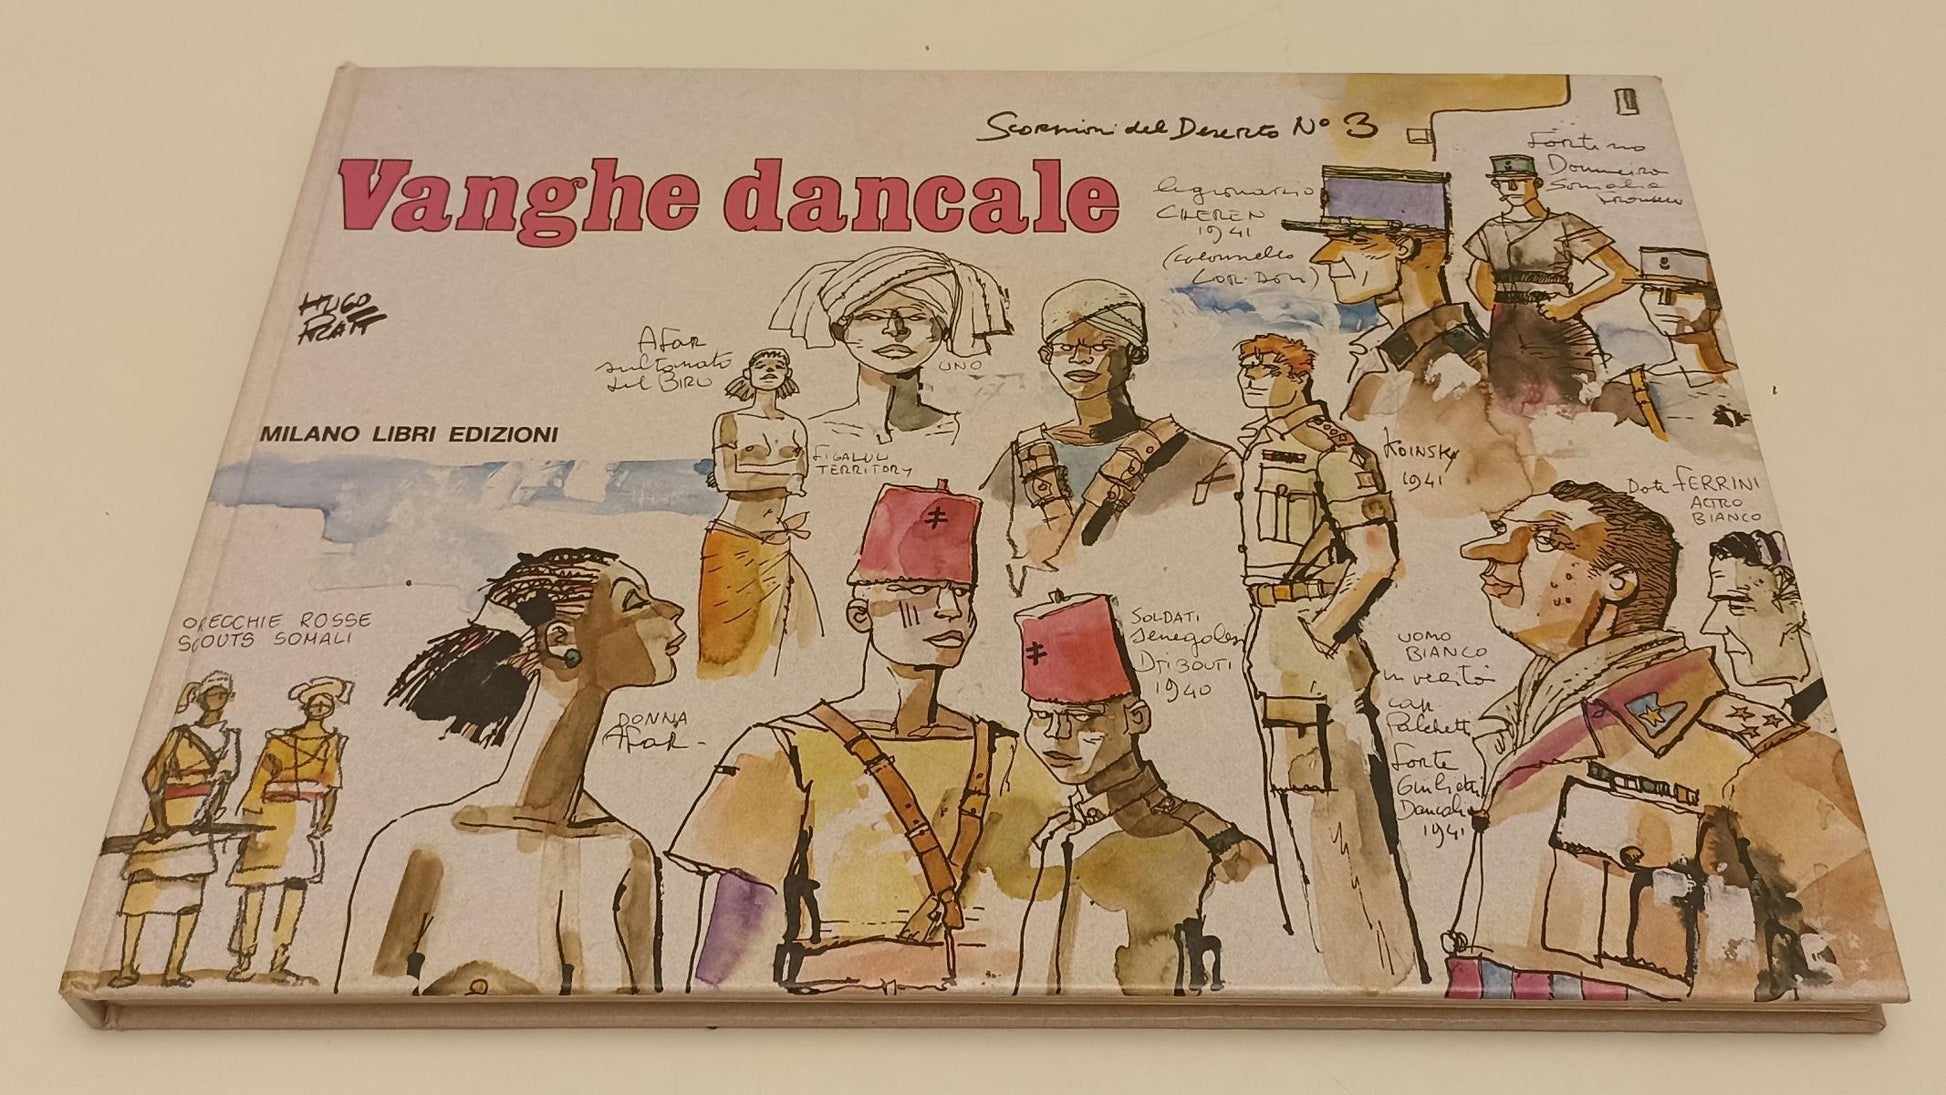 Scorpioni del Deserto Nº 3
Vanghe dancale
HUGO
PRATT
MILANO LIBRI EDIZIONI
legionario
CHEREN
1941
(colonnello
Fortino
Somalia
Afar
sultanato
del BIRU
UNO
FIGALUL
TERRITORY
KOINSKY
1941
Dott FERRINI
ALTRO
BIANCO
ORECCHIE ROSSE
SCOUTS SOMALI
DONNA
AFAR-
SOLDATI
Senegalesi
DJIBOUTI
1940
UOMO
BIANCO
in verità
cap
Palchetti
Forte
Giulietti
Dancalia
1941